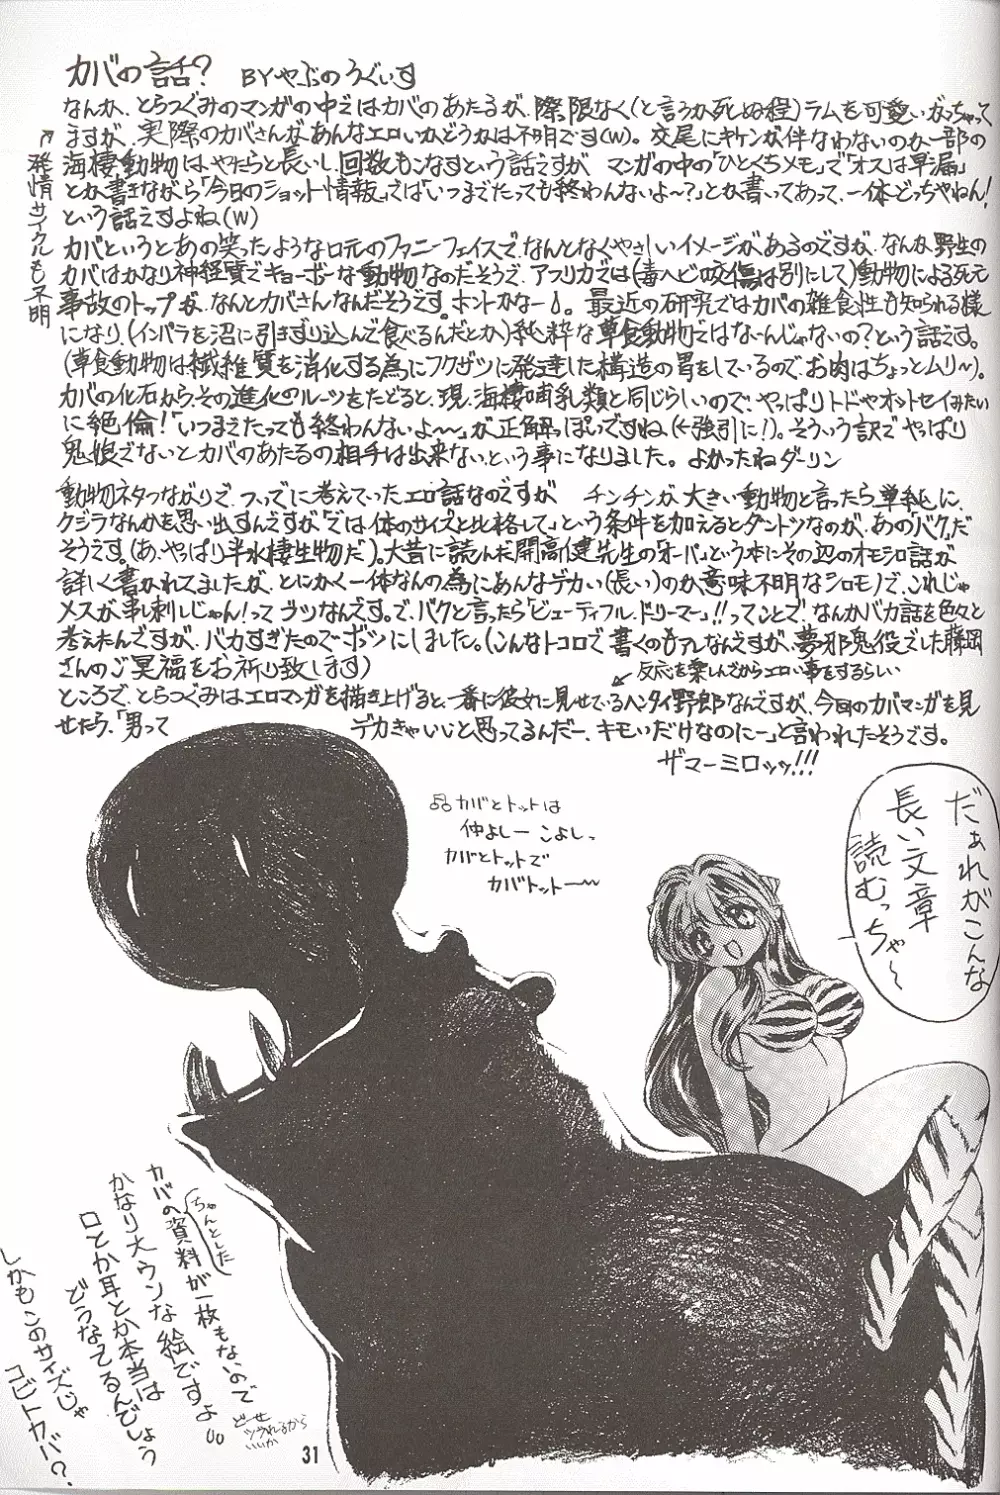 カバの話? BYやぶのうぐいす
なんか、とらつぐみのマンガの中ではカバのあたるが、際限なく(と言うか死ぬ程)ラムを可愛いがっちゃって
ますが、実際のカバさんがあんなエロいかどうかは不明です(W)。交尾にキケンが伴なわないのか一部の
海棲動物は、やたらと長いし、回数もこなすという話ですが マンガの中の「ひとくちメモ」で「オスは早漏」
とか書きながら「今日のショット情報」では「いつまでたっても終わんないよ〜?」とか書いてあって、一体どっちやねん!
という話ですよね(W)
↑発情サイクルも不明
カバというとあの笑ったような口元のファニーフェイスで、なんとなくやさしいイメージがあるのですが、なんか、野生の
カバはかなり神経質でキョーボーな動物なのだそうで、アフリカでは(毒ヘビの咬傷は別にして)動物による死亡
事故のトップが、なんとカバさんなんだそうです。ホントかなー。最近の研究ではカバの雑食性も知られる様
になり、(インパラを沼に引きずり込んで食べるんだとか)純粋な草食動物ではな〜んじゃないの?という話です。
(草食動物は繊維質を消化する為にフクザツに発達した構造の胃をしているので、お肉はちょっとムリ〜)。
カバの化石から、その進化のルーツをたどると、現、海棲哺乳類と同じらしいので、やっぱりトドやオットセイみたい
に絶倫!「いつまでたっても終わんないよ〜〜」が正解っぽいですね、(←強引に!)。そういう訳でやっぱり
鬼娘でないとカバのあたるの相手は出来ない、という事になりました。よかったねダーリン
動物ネタつながりで、ついでに考えていったエロ話なのですが チンチンが大きい動物と言ったら単純に、
クジラなんかを思い出すんですが「では体のサイズと比格して」という条件を加えるとダントツなのが、あの「バク」だ
そうです。(あ、やっぱり半水棲生物だ)。大昔に読んだ開高健先生の「オーパ」という本にその辺のオモシロ話が
詳しく書かれてましたが、とにかく一体なんの為にあんなデカい(長い)のか意味不明なシロモノで、これじゃ
メスが串刺しじゃん!ってウソなんです。で、バクと言ったら「ビューティフル・ドリーマー」!!ってことで、なんかバカ話を色々と
考えたんですが、バカすぎたのでボツにしました。(こんなトコロで書くのもアレなんですが、夢邪鬼役でした藤岡
さんのご冥福をお祈り致します)
↙反応を楽しんでからエロい事をするらしい
ところで、とらつぐみはエロマンガを描き上げると、一番に彼女に見せているヘンタイ野郎なんですが、今回のカバマンガを見
せたら、「男って デカきゃいいと思ってるんだー、キモいだけなのにー」と言われたそうです。
ザマーミロッッ!!!
だぁれがこんな
長い文章
読むっちゃ〜
♫カバとトットは
仲よしー こよし、
カバとトットで
カバトットー〜
カバの資料が一枚もないので
ちゃんとした
かなり大ウソな絵ですよ。
口とか耳とか本当は
どうなってるんでしょう
しかもこのサイズじゃ
コビトカバ?
どーせ
ツブれるから
いいか
31